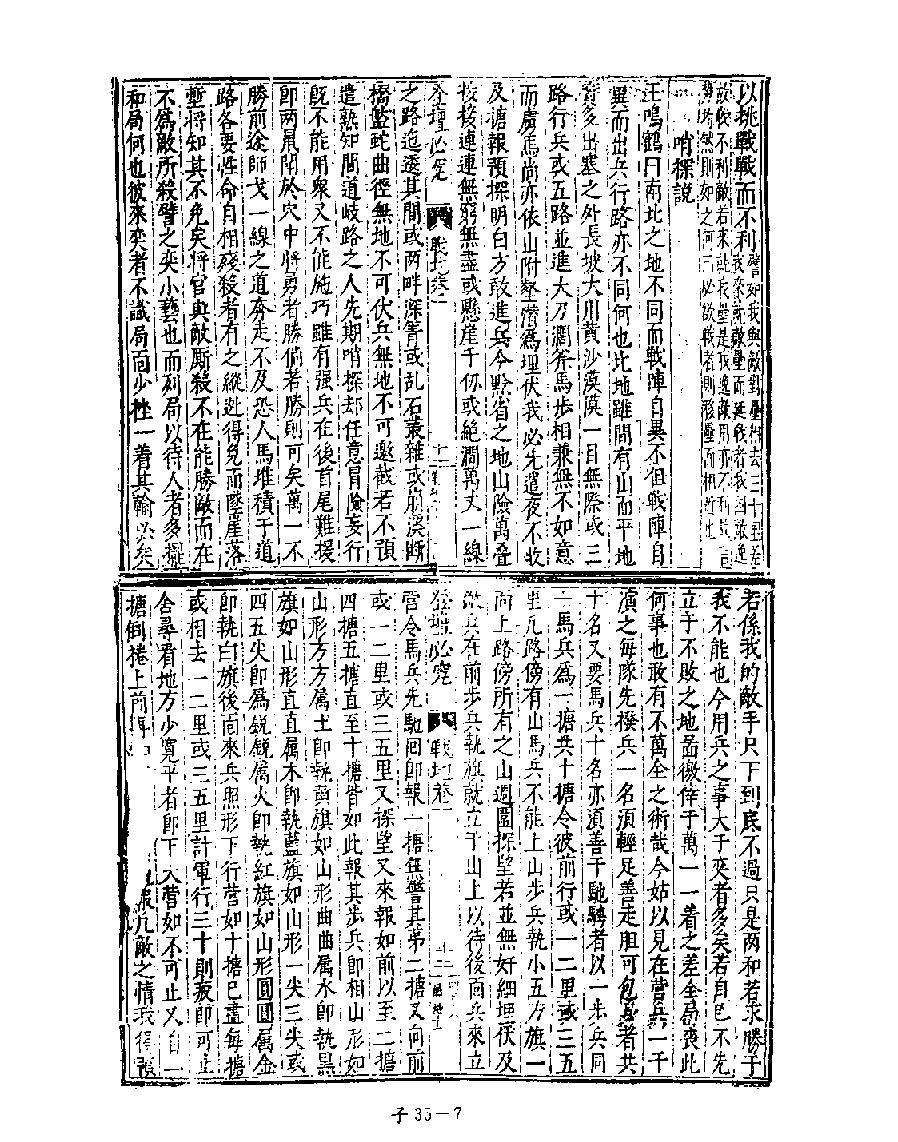 以挑戰戰而不利譬如我與敵對壘相去三十里若
哨探說
汪鳴鶴曰南北之地不同而戰陣自異不但戰陣自
異而出兵行路亦不同何也北地雖間有山而平地
實多出塞之外長坡大川黃沙漠漠一目無際或三
路行兵或五路並進大刀濶斧馬步相兼無不如意
而虜馬尚亦依山附壑潛為埋伏我必先遣夜不收
及塘報預探明白方敢進兵今黔省之地山險萬叠
接接連連無窮無盡或懸崖千仞或絶澗萬丈一線
登壇必究
之路迤逶其間或两畔深箐或乱石叢雜或崩溪斷
橋藍蛇曲徑無地不可伏兵無地不可邀截若不預
遣熟知間道岐路之人先期哨探却任意冒險妄行
旣不能用衆又不能施巧雖有强兵在後首尾難援
即两鼠鬬於穴中將勇者勝偷者勝則可矣萬一不
勝前途師戈一線之道奔走不及恐人馬堆積于道
路各要性命自相殘殺者有之縱逃得免而墜崖落
塹將知其不免矣將官與敵厮殺不在能勝敵而在
不為敵所殺譬之奕小藝也而列局以待人者多擺
和局何也彼來奕者不識局面少挫一着其輸必矣
若係我的敵手只下到底不過只是两和若求勝于
我不能也今用兵之事大于奕者多矣若自已不先
立于不敗之地啚徼倖于萬一一着之差全局喪此
何事也敢有不萬全之術哉今姑以見在營兵一千
演之每隊先撥兵一名須輕足善走胆可包身者共
十名又要馬兵十名亦須善于馳騁者以一步兵同
一馬兵為一搪共十搪令彼前行或一二里或三五
里凢路傍有山馬兵不能上山步兵執小五方旗一
向上路傍所有之山週圍探望若並無奸細埋伏及
敵兵在前步兵執旗就立于山上以待後面兵來立
登壇必究
營令馬兵先馳囘即報一搪無警其第二搪又向前
或一二里或三五里又探望又來報如前以至二搪
四搪五搪直至十搪皆如此報其步兵即相山形如
山形方方属土即執黃旗如山形曲曲属水即執黑
旗如山形直直属木即執藍旗如山形一尖三尖或
四五尖即為鋭鋭属火即執紅旗如山形圓圓属金
即執白旗後面來兵照形下行營如十搪已遣每搪
或相去一二里或三五里計軍行三十則疲即可止
舍尋看地方少寬平者即下大營如不可止又自一
搪倒捲上前
凢敵之情我得預